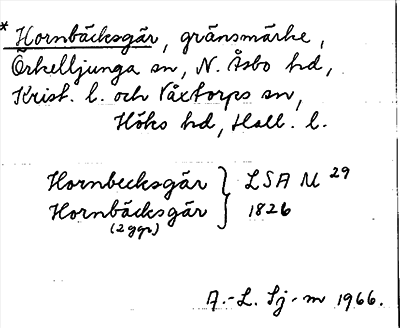 * Hornbäcksgär, gränsmärke,
Örkelljunga sn, N. Åsbo hd,
Krist. l. och Våxtorps sn,
Höks hd, Hall. l.
Hornbecksgär } LSA M 29
Hornbäcksgär } 1826
(2 ggr)
A.-L. Sj-m 1966.